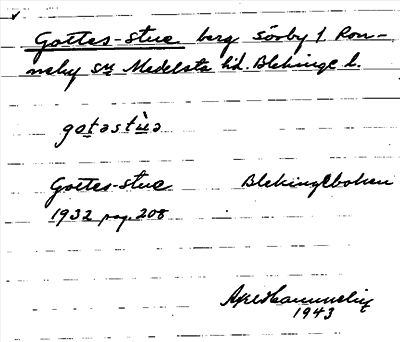 Goetes-stue berg Sörby i Ron-
neby sn Medelsta hd. Blekinge l.
gotəstùə
Goetes-stue Blekingeboken
1932 pag. 208
Axel Hammelin
1943